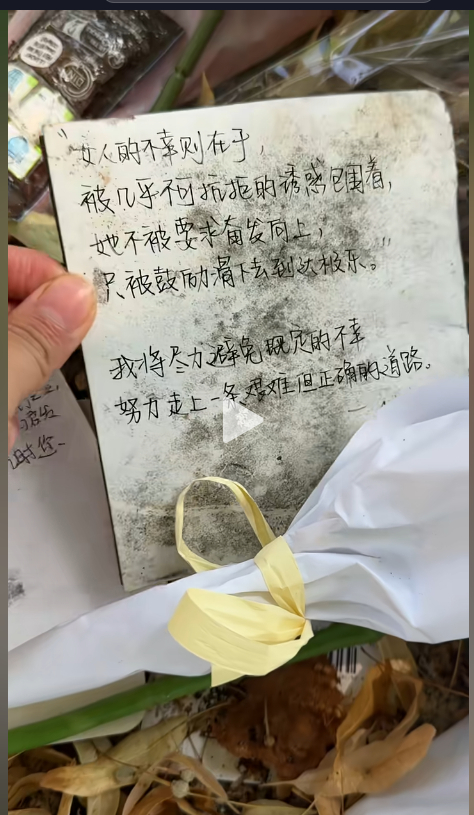 "女人的不幸则在于，
被几乎不可抗拒的诱惑包围着，
她不被要求奋发向上，
只被鼓励滑下去到达极乐。"
我将尽力避免既定的不幸
努力走上一条艰难但正确的道路。
谢您